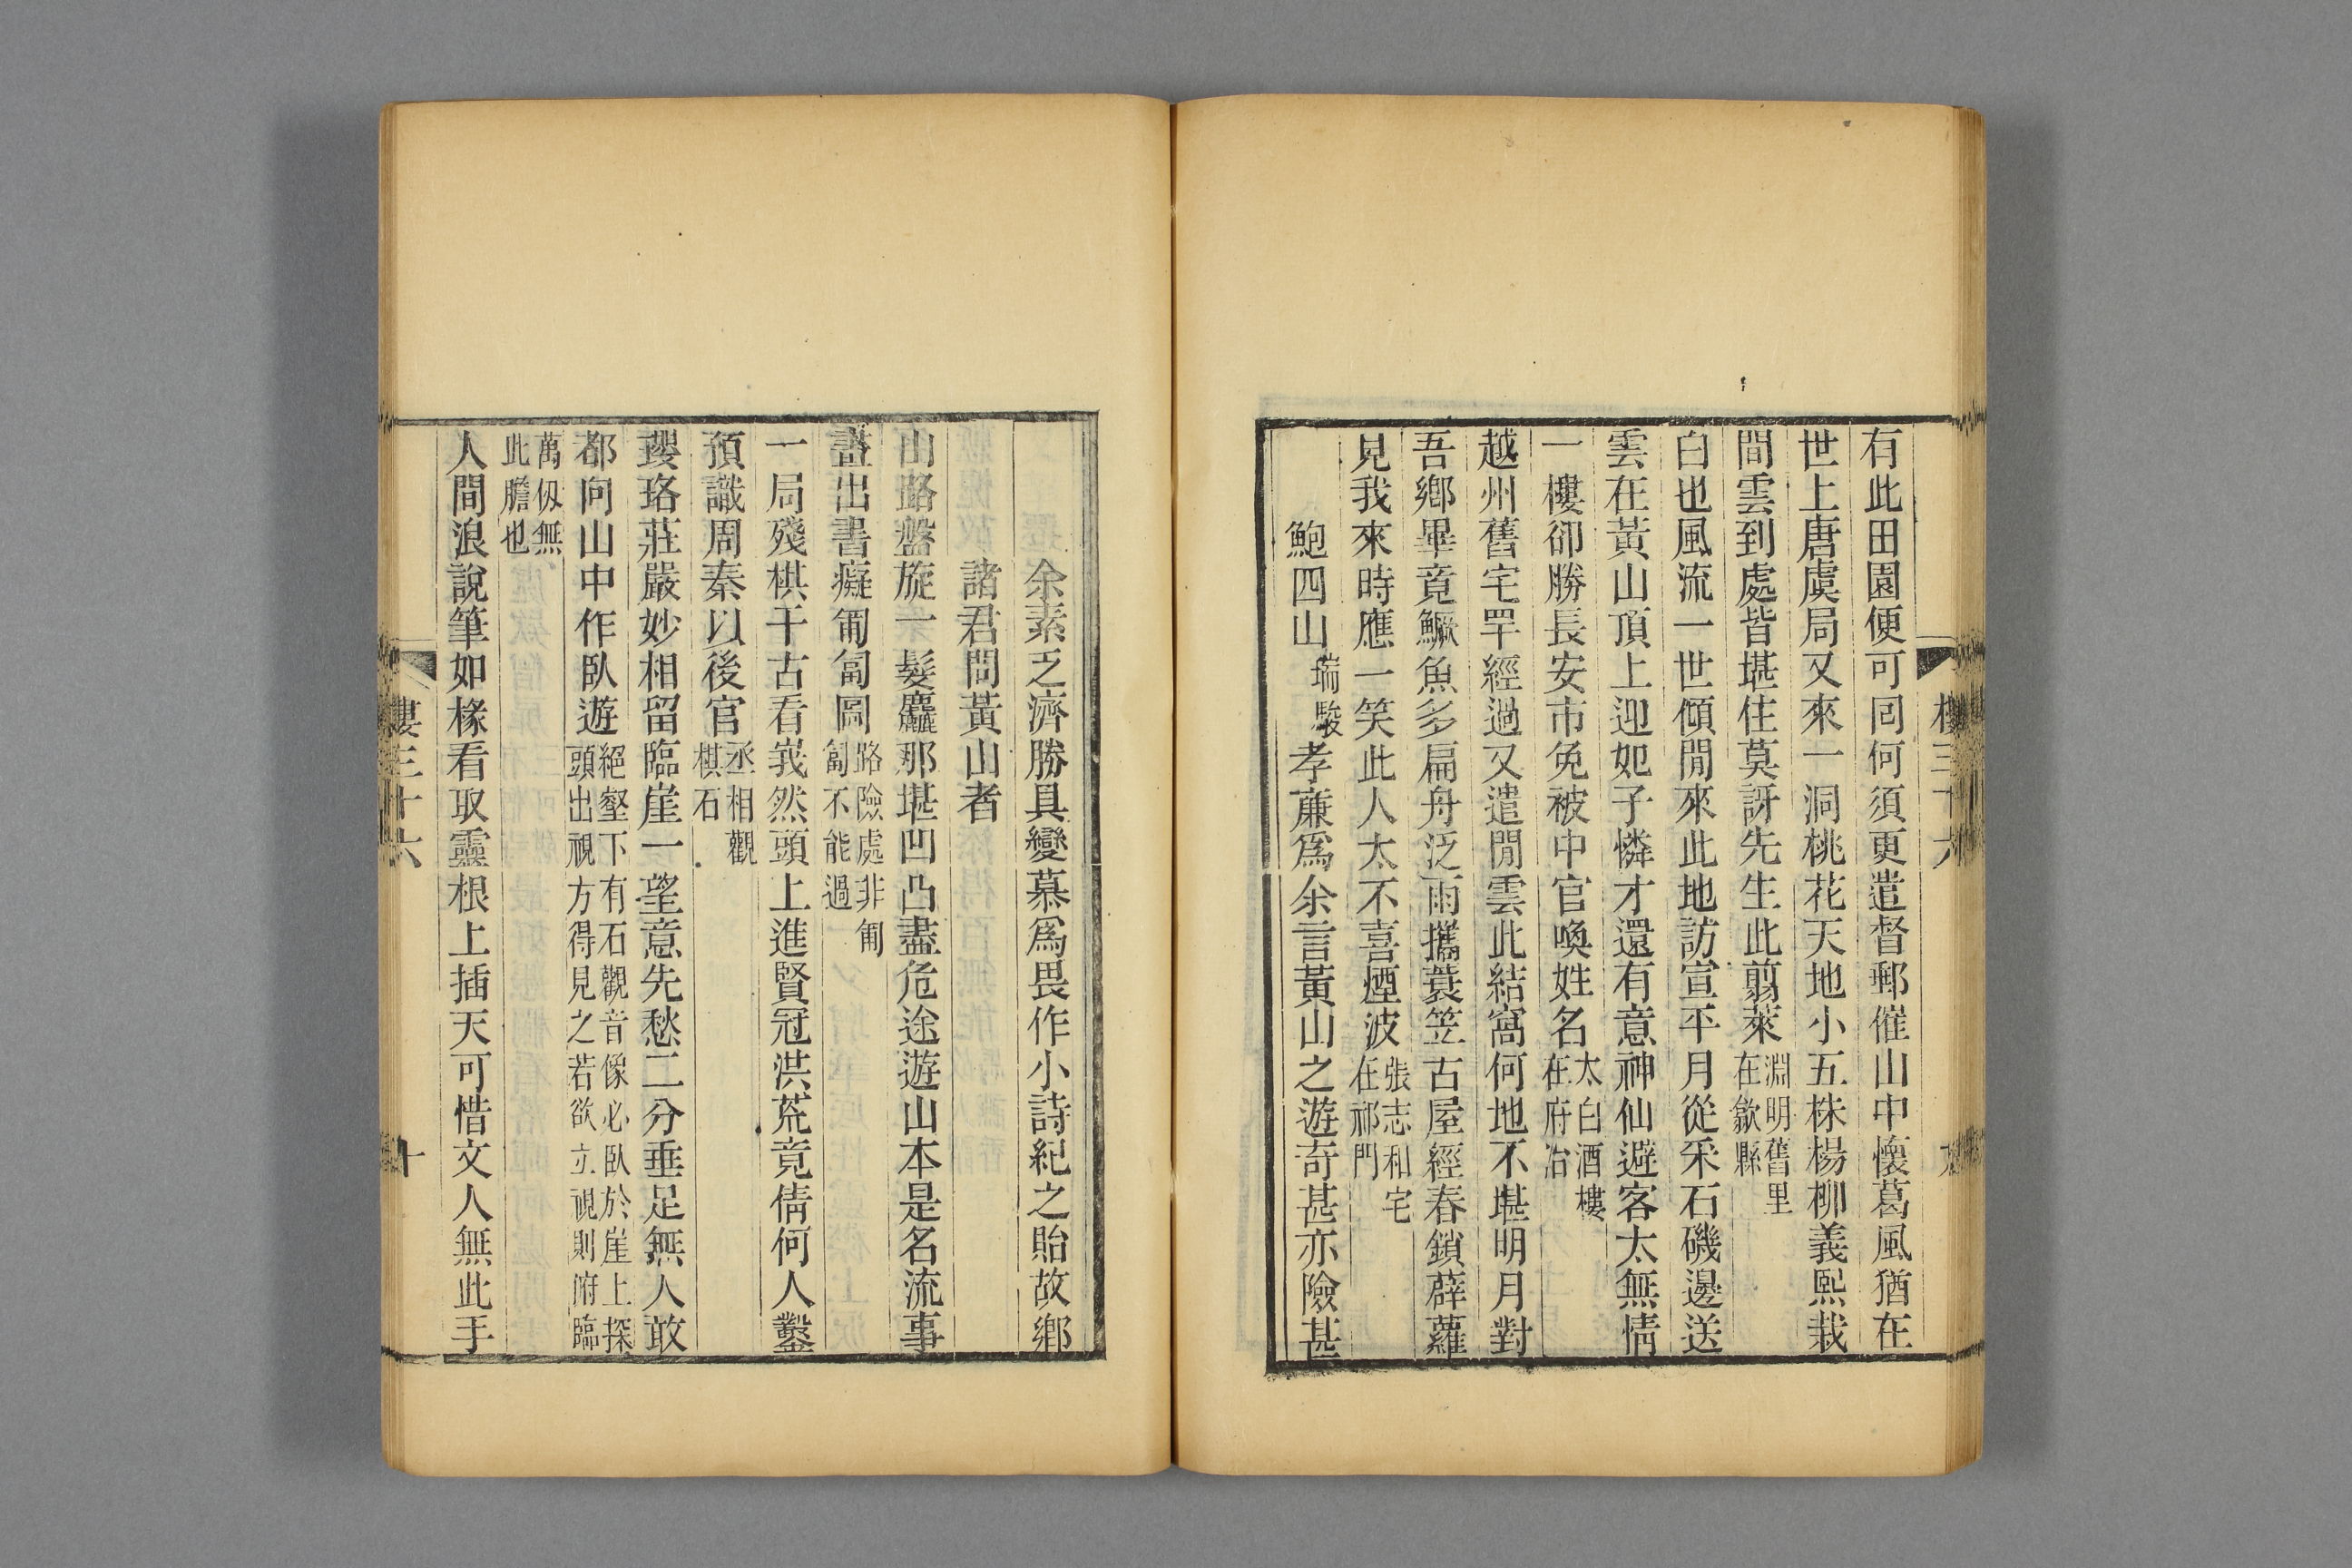 有此田園便可回何須更遣督郵催山中懷葛風猶在
世上唐虞局又來一洞桃花天地小五株楊柳義熙栽
間雲到處皆堪住莫訝先生此翦萊淵明舊里在歙縣
白也風流一世傾閒來此地訪宣平月從采石磯邊送
雲在黃山頂上迎如子憐才還有意神仙避客太無情
一樓卻勝長安市免被中官喚姓名太白酒樓在府治
越州舊宅罕經過又遣閒雲此結窩何地不堪明月對
吾鄉畢竟鱖魚多扁舟泛雨攜蓑笠古屋經春鎖薜蘿
見我來時應一笑此人太不喜煙波張志和宅在祁門
鮑四山瑞駿孝廉爲余言黃山之遊奇甚亦險甚
余素乏濟勝具變慕爲畏作小詩紀之貽故鄉
諸君問黃山者
山路盤旋一髮麤那堪凹凸盡危途遊山本是名流事
畫出書癡匍匐圖路險處非匍匐不能過
一局殘棋干古看峩然頭上進賢冠洪荒竟倩何人鑿
預識周秦以後官丞相觀棋石
瓔珞莊嚴妙相留臨崖一望意先愁二分垂足無人敢
都向山中作臥遊絕壑下有石觀音像必臥於崖上探頭出視方得見之若欲立視則俯臨
萬仞無此膽也
人間浪說筆如椽看取靈根上插天可惜文人無此手
樓三十六
十